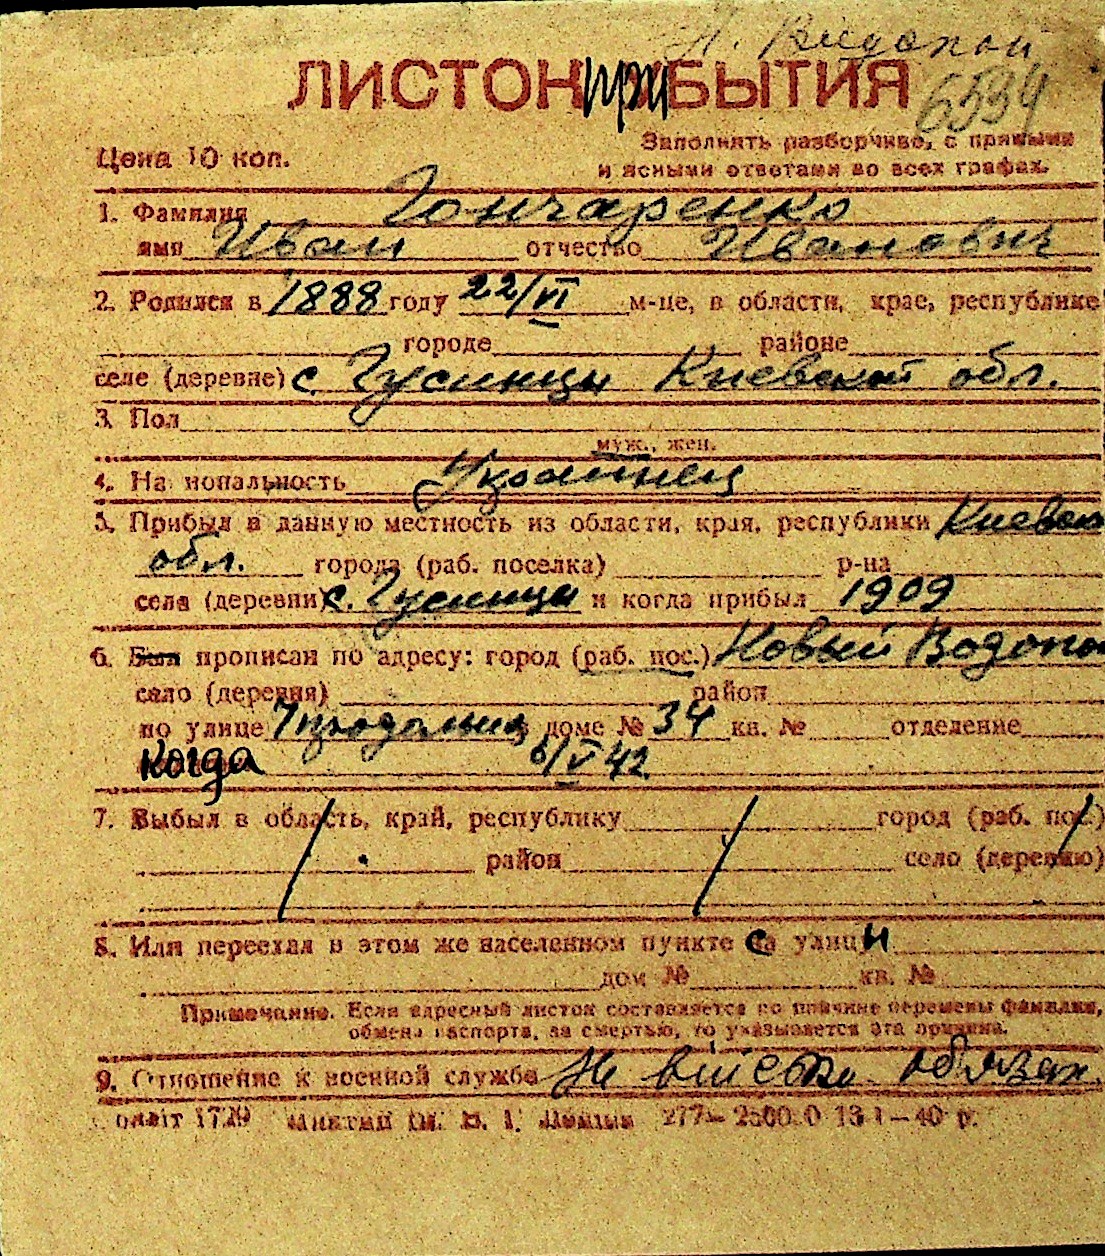 Н. Видопой
ЛИСТОК при БЫТИЯ
6594
Цена 10 коп.
Заполнять разборчиво, с прямыми
и ясными ответами во всех графах.
1. Фамилия Гончаренко
имя Иван отчество Иванович
2. Родился в 1888 году 22/VI м-це, в области, крае, республике
городе районе
селе (деревне) с. Гусинцы Киевской обл.
3. Пол
муж., жен.
4. Национальность Украинец
5. Прибыл в данную местность из области, края, республики Киевск
обл. города (раб. поселка) р-на
села (деревни) с. Гусинцы и когда прибыл 1909
6. Был прописан по адресу: город (раб. пос.) Новый Водопо
село (деревня) район
по улице 7 продольна доме № 34 кв. № отделение
когда 6/V 42
7. Выбыл в область, край, республику город (раб. пос.)
район село (деревню)
8. Или переехал в этом же населенном пункте с улицы
дом № кв. №
Примечание. Если адресный листок составляется по причине перемены фамилии,
обмена паспорта, за смертью, то указывается эта причина.
9. Отношение к военной службе Не військ обязан.
1729 277— 40 р.